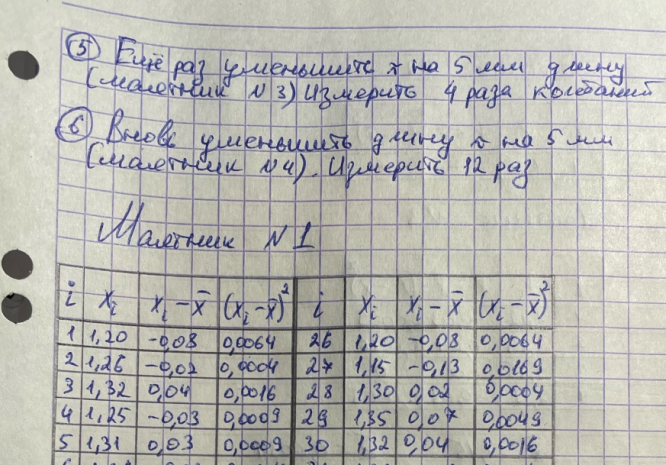 ⑤ Ещё раз уменьшить x на 5 мм длину
(маятник N3) Измерить 4 раза колебаний
⑥ Вновь уменьшить длину x на 5 мм
(маятник N4). Измерить 12 раз
Маятник N1
i xᵢ xᵢ-x̄ (xᵢ-x̄)² i xᵢ xᵢ-x̄ (xᵢ-x̄)²
1 1,20 -0,08 0,0064 26 1,20 -0,08 0,0064
2 1,26 -0,02 0,0004 27 1,15 -0,13 0,0169
3 1,32 0,04 0,0016 28 1,30 0,02 0,0004
4 1,25 -0,03 0,0009 29 1,35 0,07 0,0049
5 1,31 0,03 0,0009 30 1,32 0,04 0,0016